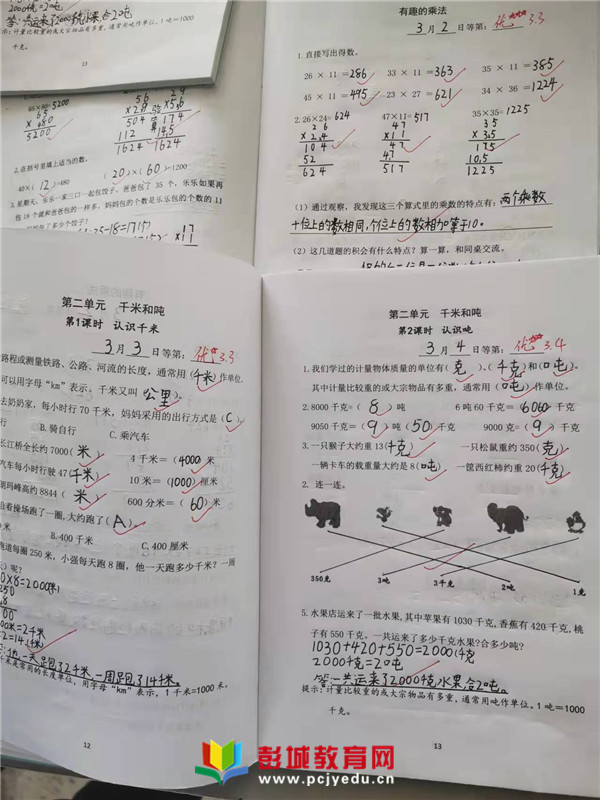 2000千克=20吨
答:一共运来了2000千克水果,合20吨
示:计量比较重的或大宗物品有多重,通常用吨作单位。1吨=1000
千克。
13
65×80=5200
65
×80
5200
56
×29
504
112
1624
验算
29
×56
174
145
1624
2.在括号里填上适当的数。
40×(12)=480
(20)×(60)=1200
3.星期天,乐乐一家三口一起包饺子。爸爸包了35个,乐乐如果再
包18个就和爸爸包的一样多,妈妈包的个数是乐乐包的个数的11
有趣的乘法
3月2日等第:优 3.3
1.直接写出得数。
26×11=286 33×11=363 35×11=385
45×11=495 23×27=621 34×36=1224
2.26×24=624 47×11=517 35×35=1225
26
×24
104
52
624
47
×11
47
47
517
35
×35
175
105
1225
(1)通过观察,我发现这三个算式里的乘数的特点有:两个乘数
十位上的数相同,个位上的数相加等于10。
(2)这几道题的积会有什么特点?算一算,和同桌交流。
第二单元 千米和吨
第1课时 认识千米
3月3日等第:优 3.3
路程或测量铁路、公路、河流的长度,通常用(千米)作单位,
可以用字母“km”表示。千米又叫(公里)。
去奶奶家,每小时行70千米,妈妈采用的出行方式是(C)。
B.骑自行 C.乘汽车
长江桥全长约7000(米) 4千米=(4000)米
汽车每小时行驶47(千米) 10米=(1000)厘米
朗玛峰高约8844(米) 600分米=(60)米
沿着操场跑了一圈,大约跑了(A)。
米 B.400千米 C.400厘米
跑道每圈250米,小强每天跑8圈,他一天跑多少千米?一周
)呢?
0×8=2000(米)
=2千米
2=14(千米)
他一天跑2千米,一周跑14千米。
千米是常用的长度单位,用字母“km”表示,1千米=1000米。
12
第二单元 千米和吨
第2课时 认识吨
3月4日等第:优 3.4
1.我们学过的计量物体质量的单位有(克)、(千克)和(吨)。
其中计量比较重的或大宗物品有多重,通常用(吨)作单位。
2.8000千克=(8)吨 6吨60千克=(6060)千克
9050千克=(9)吨(50)千克 9000克=(9)千克
3.一只猴子大约重13(千克) 一只松鼠重约350(克)
一辆卡车的载重量大约是8(吨) 一筐西红柿约重20(千克)
2.连一连。
350克 3吨 3千克 2吨 1克
5.水果店运来了一批水果,其中苹果有1030千克,香蕉有420千克,桃
子有550千克。一共运来了多少千克水果?合多少吨?
1030+420+550=2000(千克)
2000千克=20吨
答:一共运来了2000千克水果,合20吨。
提示:计量比较重的或大宗物品有多重,通常用吨作单位。1吨=1000
千克。
13
彭城教育网
www.pcjyedu.cn